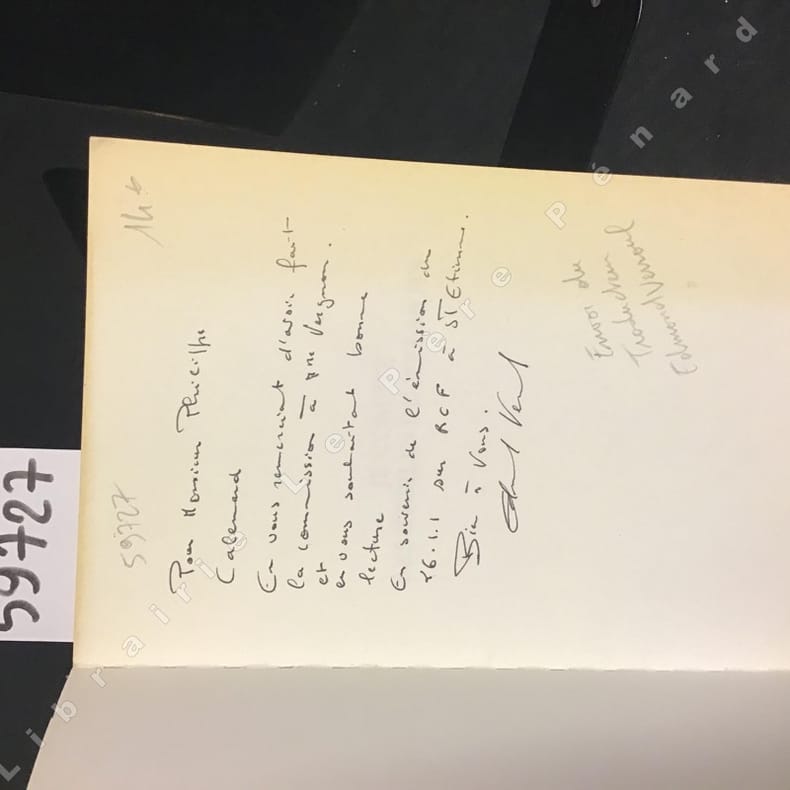 59727
59727
14 €
Pour Monsieur Philippe
Calemard
En vous remerciant d'avoir fait
la commission à Mme Vergnon.
et
en vous souhaitant bonne
lecture
En souvenir de l'émission du
26.1.1 sur RCF à ST Etienne.
Bien à vous.
Envoi du
Traducteur
Edmond Verroul
Librairie Le Père Pénard